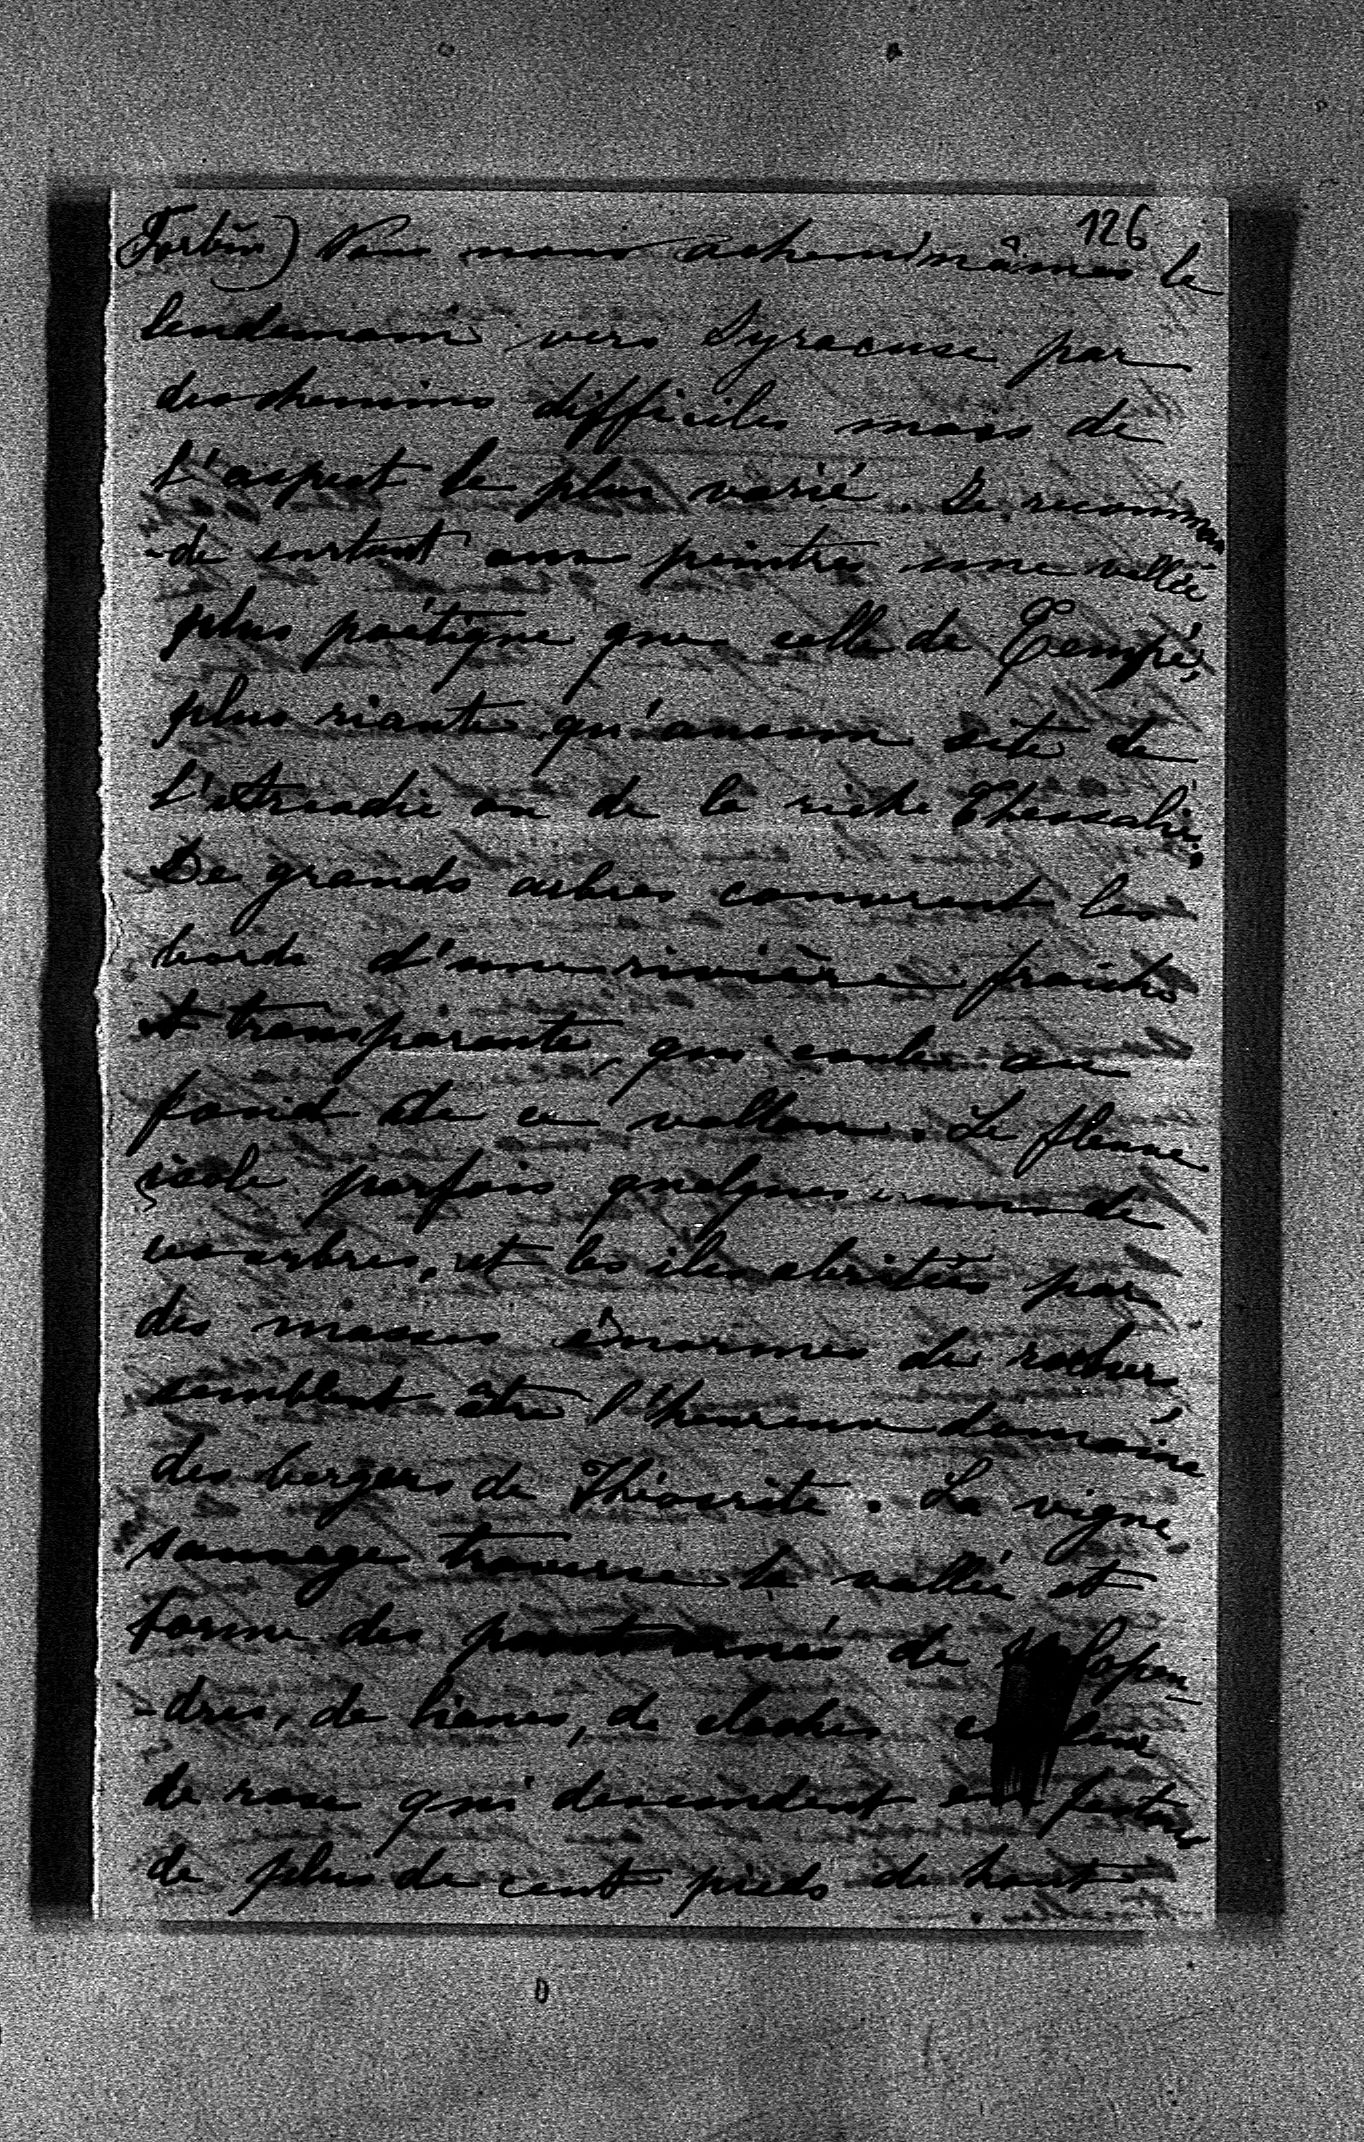 126
Forbin) Nous nous acheminâmes le
lendemain vers Syracuse par
des chemins difficiles mais de
l'aspect le plus varié. Je recomman
-de surtout aux peintres une vallée
plus poétique que celle de Tempé,
plus riante qu'aucun site de
l'Arcadie ou de la riche Thessalie.
De grands arbres couvrent les
bords d'une rivière fraîche
et transparente, qui coule au
fond de ce vallon. Le fleuve
isole parfois quelques uns de
ces arbres, et les îles abritées par
des masses énormes de rocher,
semblent être l'heureux domaine
des bergers de Théocrite. La vigne
sauvage traverse la vallée et
forme des ponts ornés de scolopen-
-dres, de lianes, de cloches couleur
de rose qui descendent en festons
de plus de cent pieds de haut